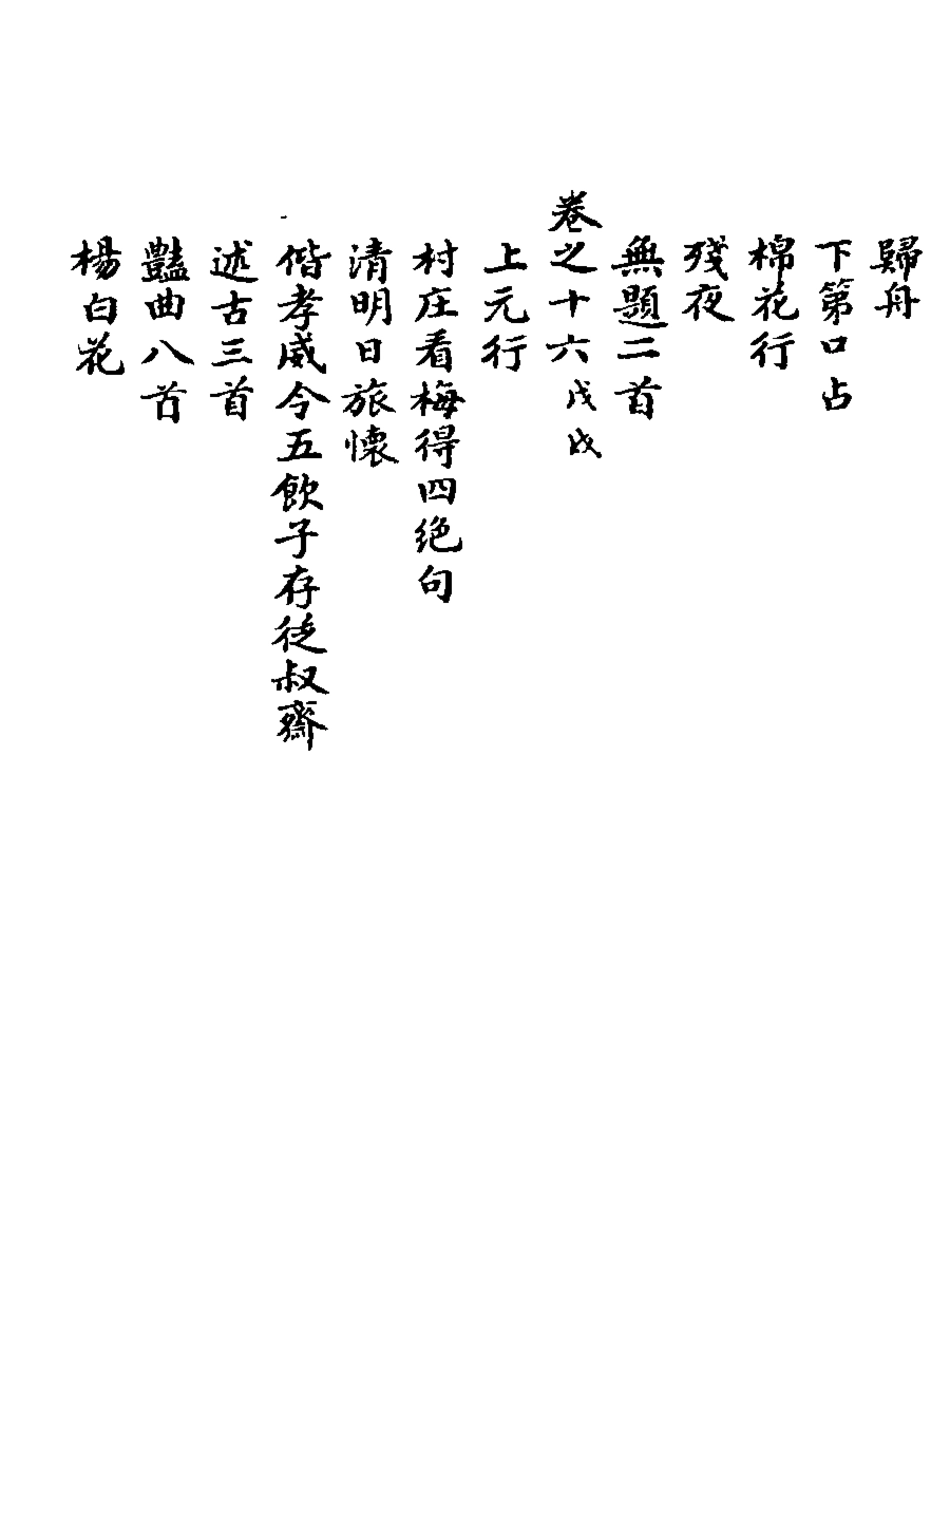 歸舟
下第口占
棉花行
殘夜
無題二首
卷之十六戊戌
上元行
村庄看梅得四绝句
清明日旅懷
偕孝威令五飲子存徒叔齋
述古三首
豔曲八首
楊白花